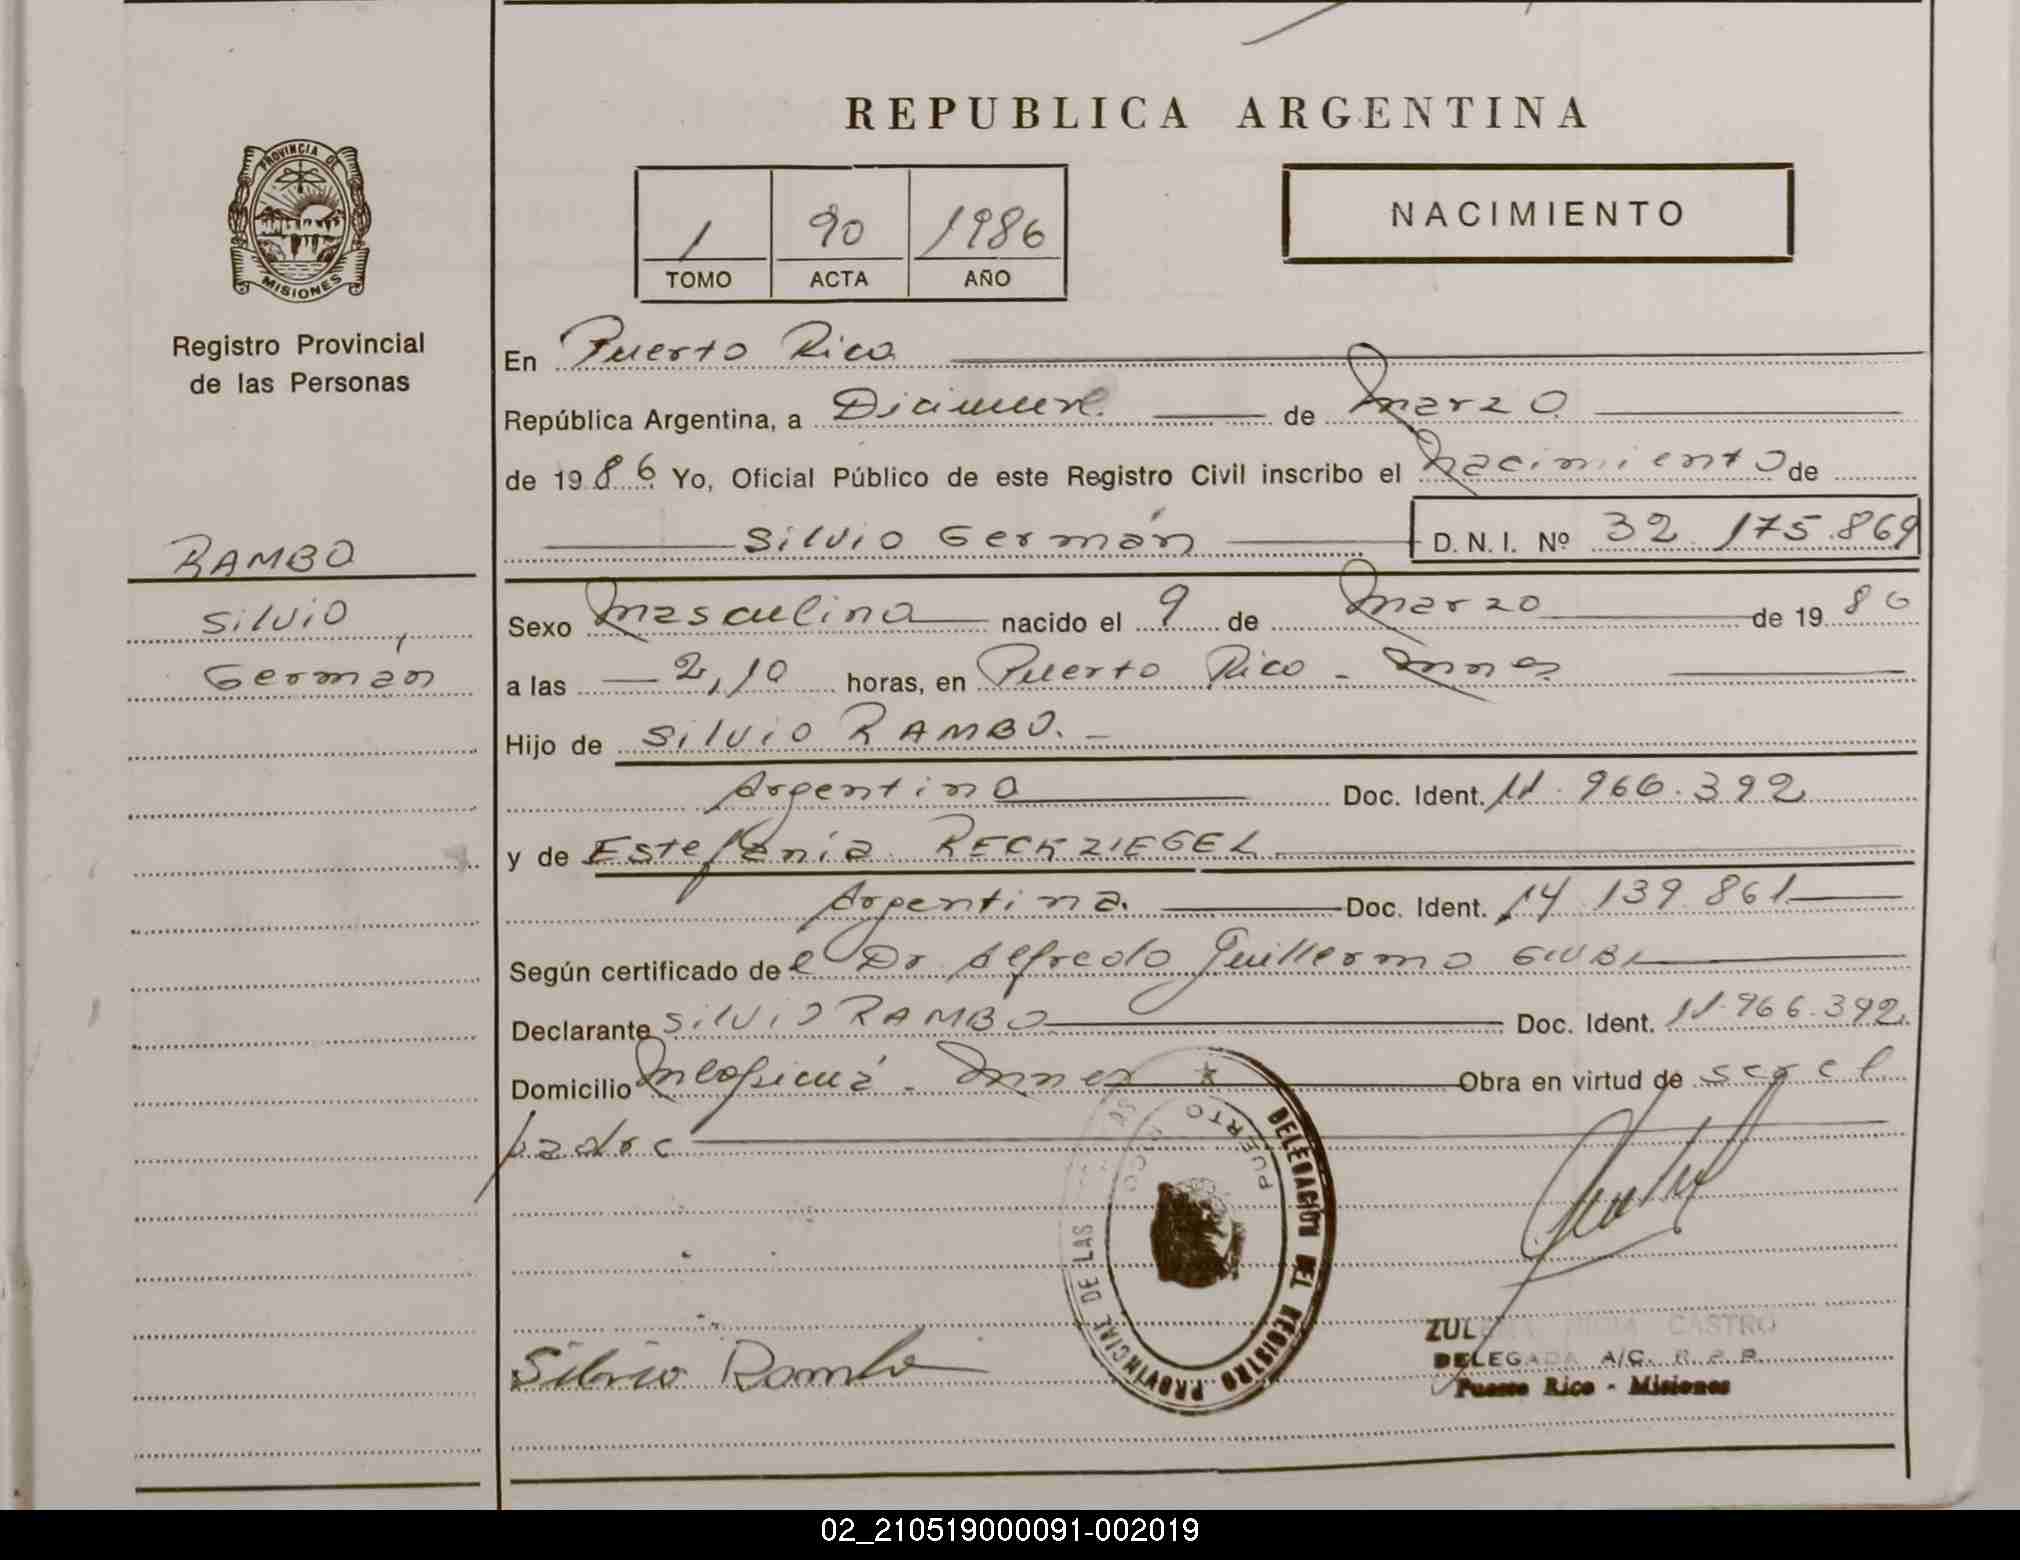 REPUBLICA ARGENTINA
PROVINCIA DE
MISIONES
Registro Provincial
de las Personas
1 90 1986
TOMO ACTA AÑO
NACIMIENTO
En Puerto Rico
República Argentina, a de Marzo
de 1986 Yo, Oficial Público de este Registro Civil inscribo el Nacimiento de
Silvio Germán D. N. I. Nº 32.175.869
RAMBO
Silvio
Germán
Sexo Masculino nacido el 9 de Marzo de 1986
a las 2,10 horas, en Puerto Rico - Mnes
Hijo de Silvio RAMBO. -
Argentino Doc. Ident. 11.966.392
y de Estefania RECKZIEGEL
Argentina. Doc. Ident. 14.139.861
Según certificado de Dr Alfredo Guillermo
Declarante Silvio RAMBO Doc. Ident. 11.966.392
Domicilio Mnes Obra en virtud de ser el
padre
DELEGACION DEL REGISTRO PROVINCIAL DE LAS
PUERTO RICO
Silvio Rambo
CASTRO
DELEGADA A/C. R.P.P.
Puerto Rico - Misiones
02_210519000091-002019